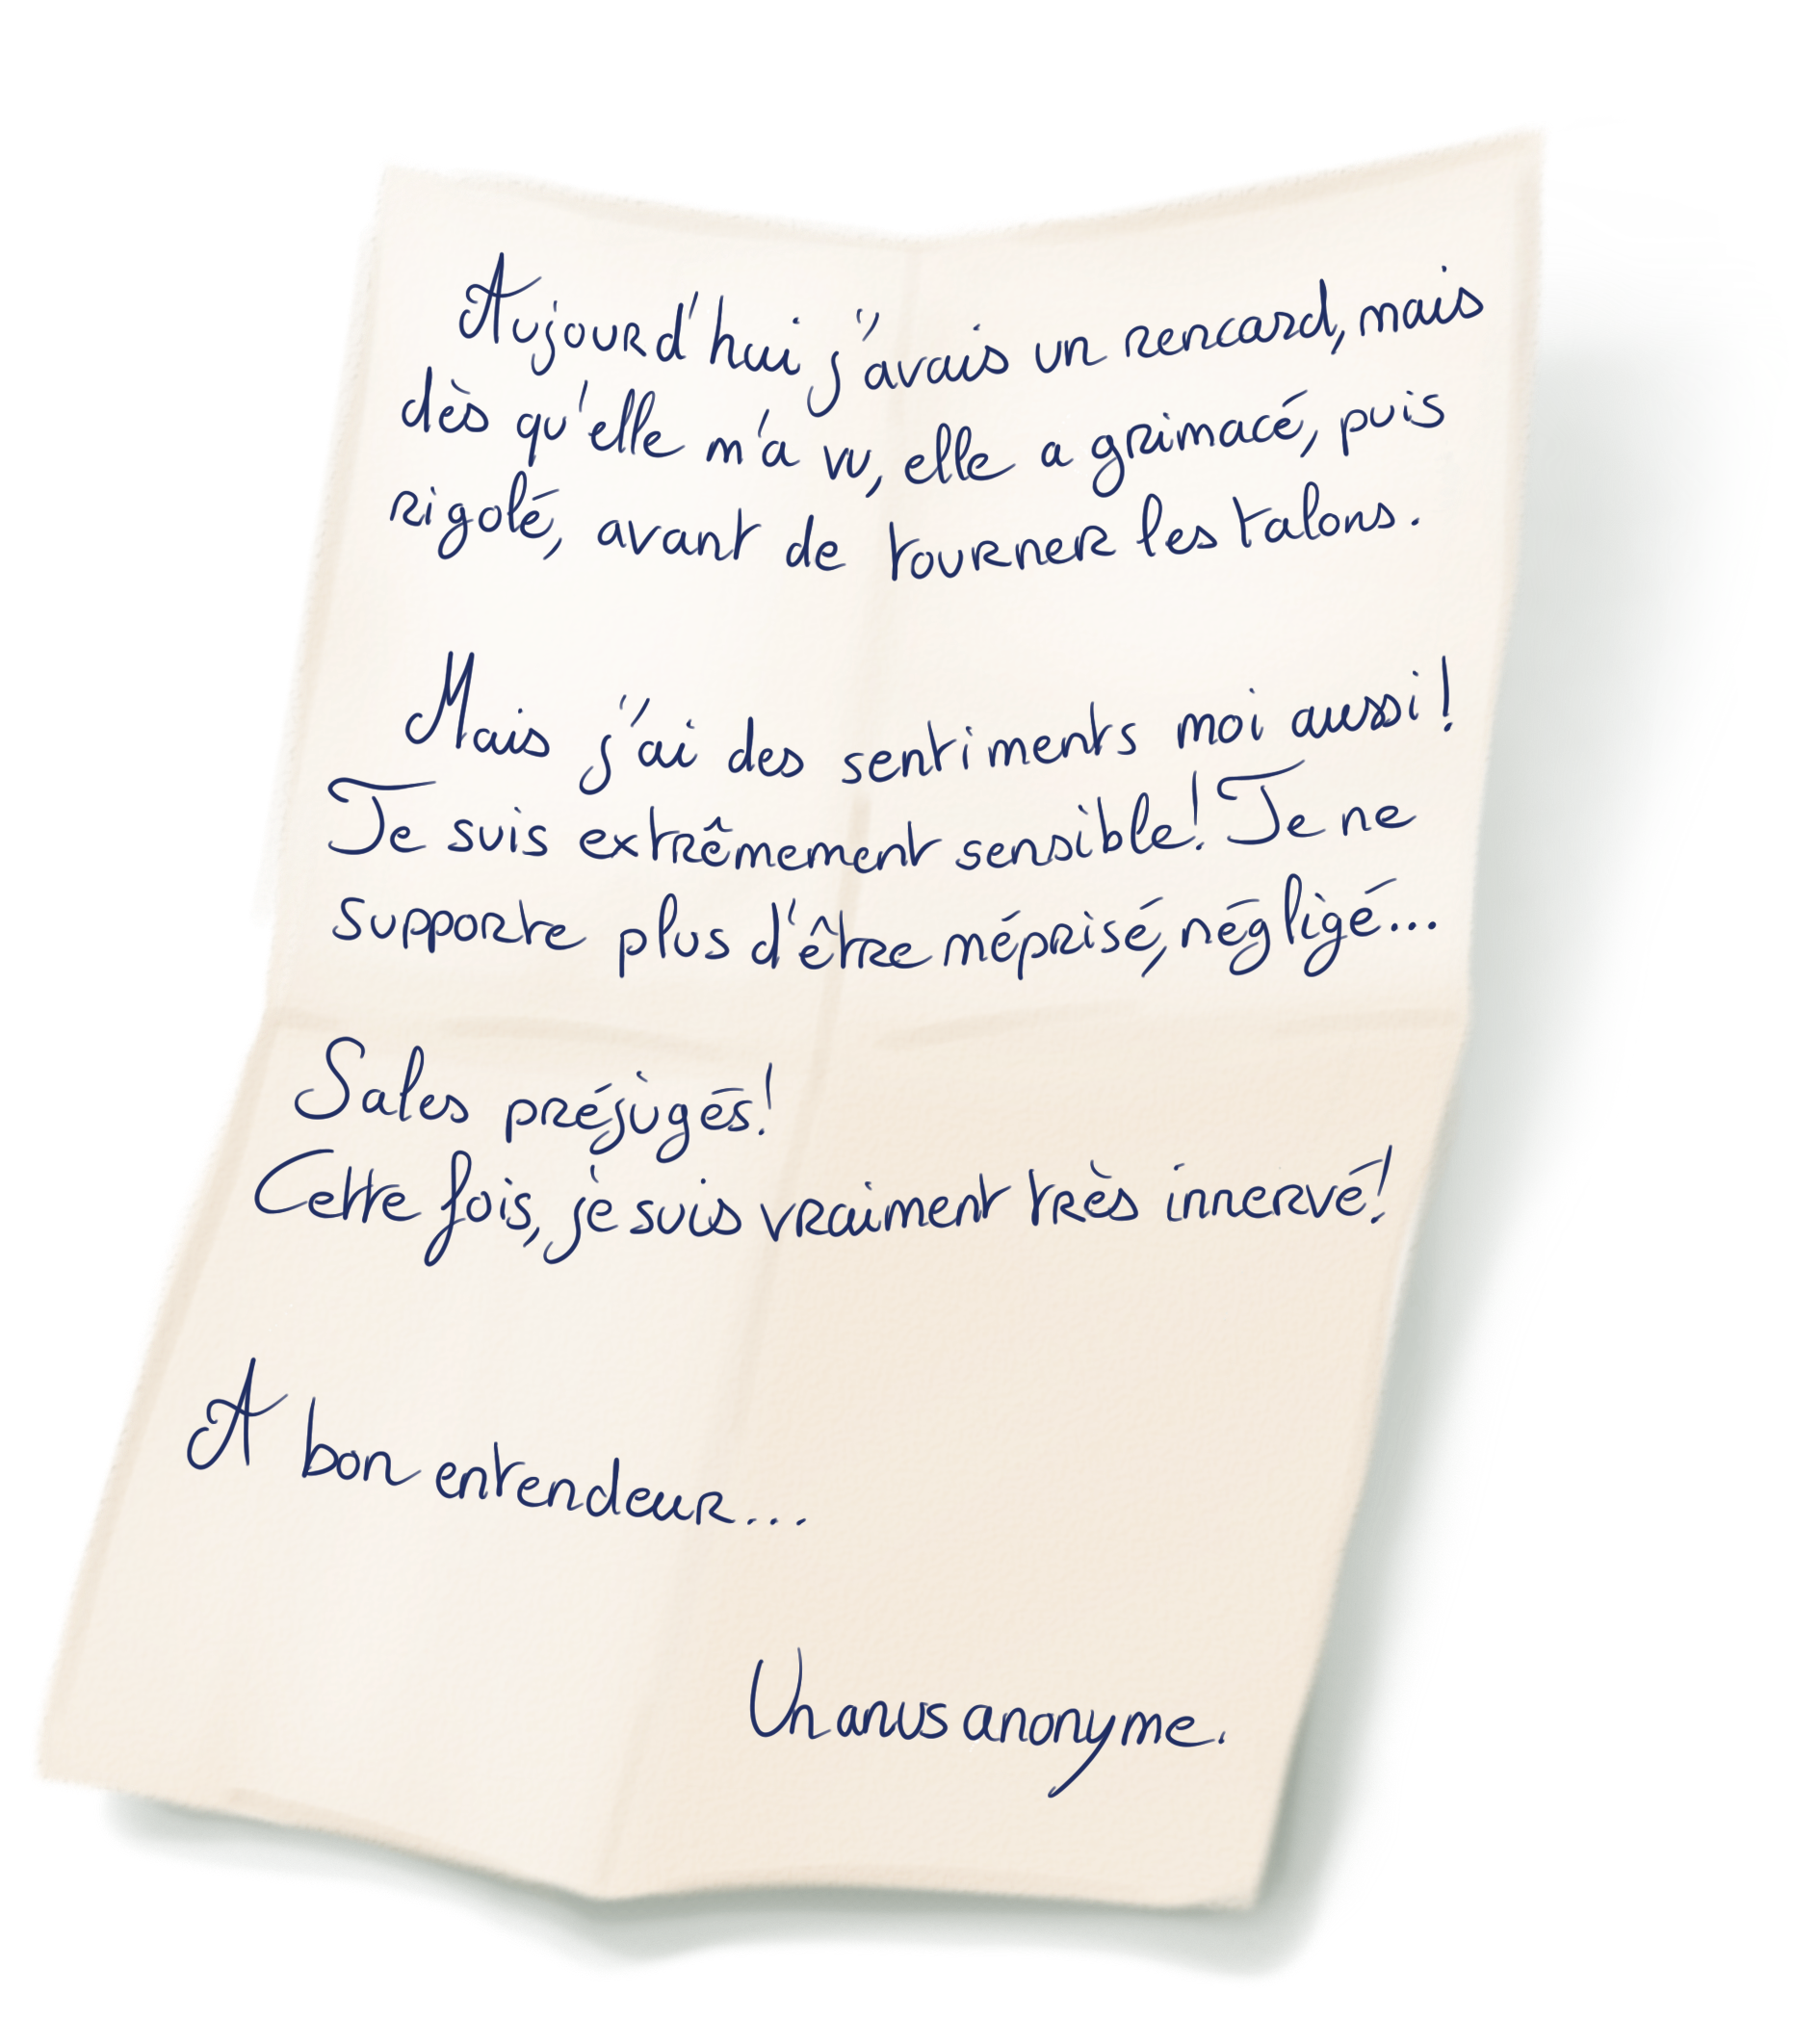 Aujourd'hui j'avais un rencard, mais
dès qu'elle m'a vu, elle a grimacé, puis
rigolé, avant de tourner les talons.
Mais j'ai des sentiments moi aussi !
Je suis extrêmement sensible! Je ne
supporte plus d'être méprisé, négligé...
Sales préjugés!
Cette fois, je suis vraiment très innervé!
A bon entendeur...
Un anus anonyme.